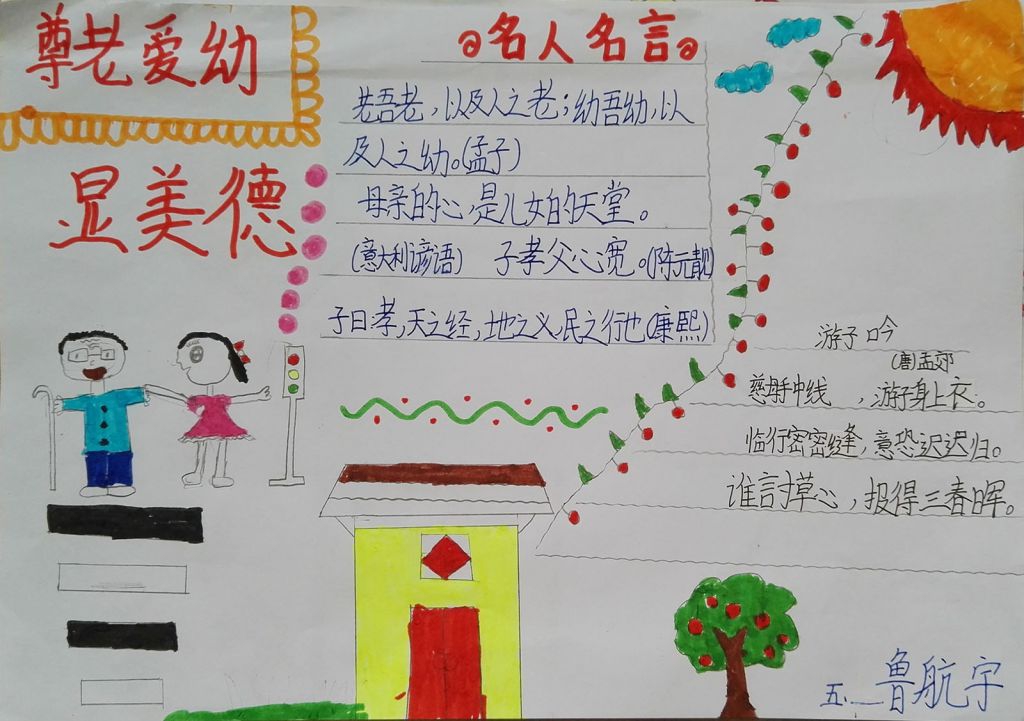 尊老爱幼
显美德
名人名言
老吾老,以及人之老;幼吾幼,以
及人之幼。(孟子)
母亲的心,是儿女的天堂。
(意大利谚语) 子孝父心宽。(陈元靓)
子曰:孝,天之经,地之义,民之行也(康熙)
游子吟
(唐)孟郊
慈母手中线 ,游子身上衣。
临行密密缝,意恐迟迟归。
谁言寸草心,报得三春晖。
五.一鲁航宇